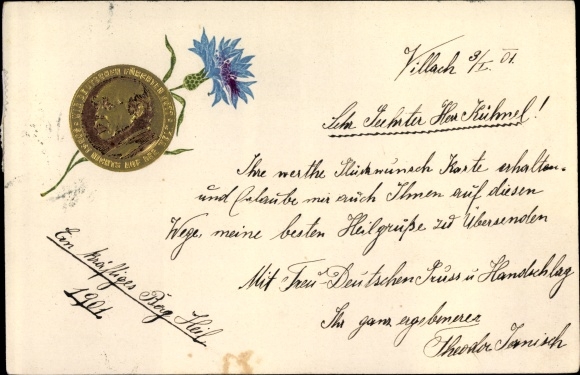 Villach 3/I. 01.
Sehr Geehrter Herr Kühnel!
Ihre werthe Glückwunsch Karte erhalten
und Erlaube mir auch Ihnen auf diesen
Wege, meine besten Heilgrüße zu Übersenden
Mit Treu-Deutschen Gruss u Handschlag
Ihr ganz ergebener
Theodor Janisch
Ein kräftiges Berg Heil
1901.